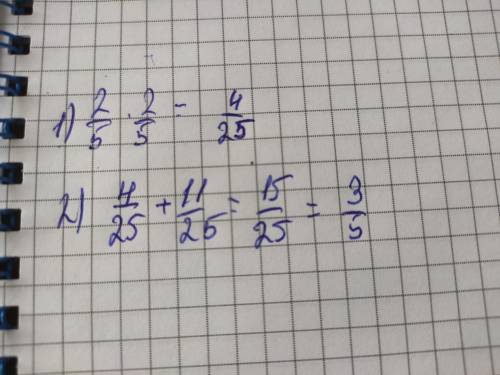 1) 2/5 · 2/5 = 4/25
2) 4/25 + 11/25 = 15/25 = 3/5